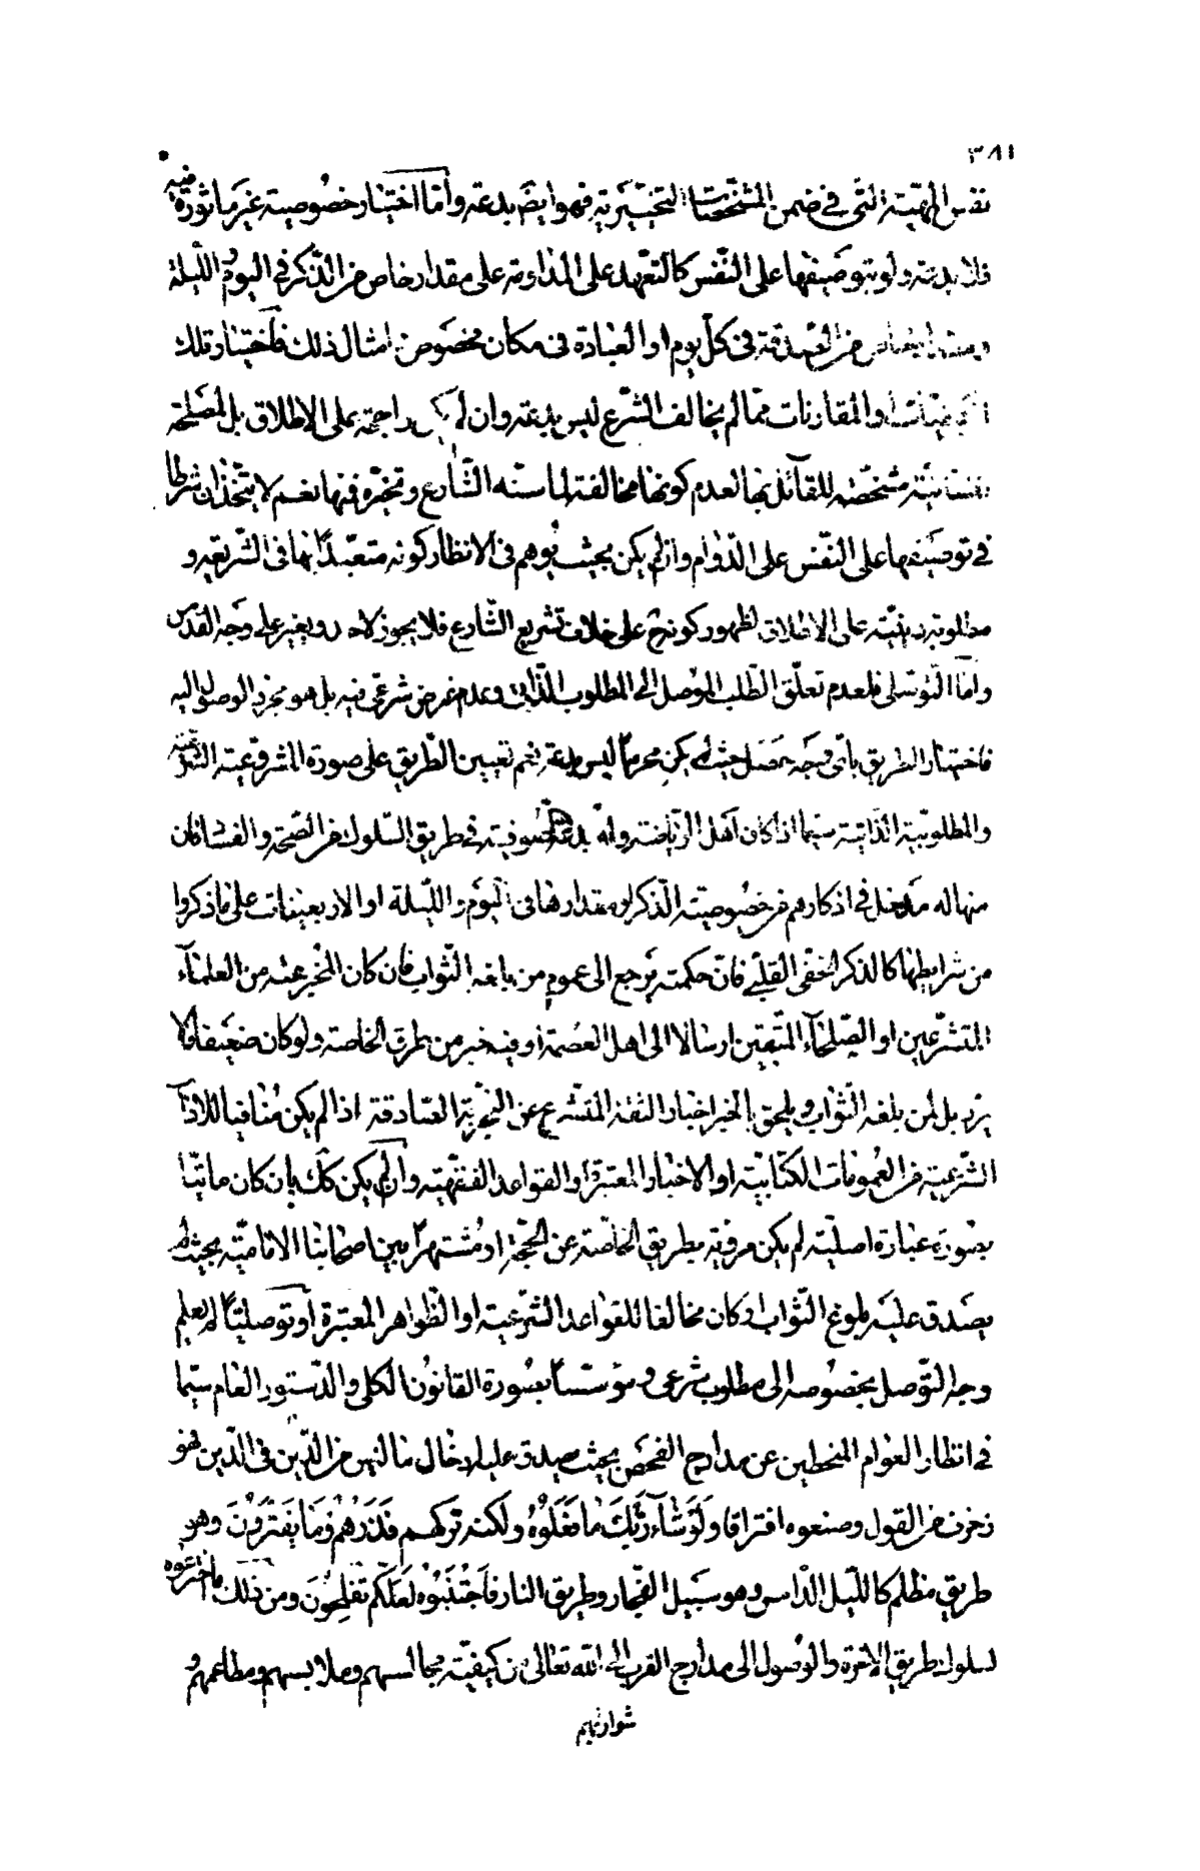 ٣٨١
نفس المهيّة الّتى فى ضمن المشخّصات التخييريّة فهو ايضا بدعة وامّا اختيار خصوصية غير ماثورة فيه
فلا بدعة ولو بتوصيفها على النّفس كالتّعهد على المداومة على مقدار خاص من الذّكر فى اليوم واللّيلة
من الصدقة فى كلّ يوم او العبادة فى مكان مخصوص امثال ذلك فاختيار تلك
او المقارنات ممّا لم يخالف الشّرع ليس بدعة وان لم يكن راجحة على الاطلاق بل لمصلحة
مشخّصة للقائل بها لعدم كونها مخالفة لما سنّه الشّارع وتخيّره فيها نعم لا يتّخذان شرطا
فى توصيفها على النّفس على الدّوام وان لم يكن بحيث يوهم فى الانظار كونه متعبّدًا بها فى الشّريعة و
مطلوبة دينيّة على الاطلاق لظهور كونه على خلاف تشريع الشّارع فلا يجوز على وجه القدس
وامّا التّوسّلى فلعدم تعلّق الطّلب الموصل الى المطلوب الذّاتى وعدم غرض شرعى فيه بل هو مجرد الوصول اليه
فاختيار الطريق باىّ وجه حصل حيث لم يكن محرما ليس بدعة نعم تعيين الطّريق على صورة المشروعيّة
والمطلوبيّة الذّاتيّة سيّما اذا كان اهل الرّياضة فى طريق السّلوك من الصّحّة والفساد فان
منها له مدخل فى اذكارهم من خصوصيّة الذّكر او مقدارها فى اليوم واللّيلة او الاربعينات على ما ذكروا
من شرايطها كالذكر الخفى القلبى فانّ حكمته يرجع الى عموم من بلغه الثّواب فان كان المخبر عنه من العلمآء
المتشرّعين او الصّلحآء المتّقين ارسالا الى اهل العصمة او فيه خبر من طرق الخاصة ولو كان ضعيفا فلا
يرد بل لمن بلغه الثّواب ويلحق بالخبر اخبار الثقة المتشرع عن التّجربة الصّادقة اذا لم يكن منافيا للادلّة
الشّرعية من العمومات الكتابيّة او الاخبار المعتبرة او القواعد الفقهيّة وان لم يكن كذلك بان كان ماتيّا
بصورة عبادة اصليّة لم يكن مرويّة بطريق الخاصّة عن الحجّة او مشتهرًا بين اصحابنا الاماميّة بحيث
يصدق عليه بلوغ الثّواب او كان مخالفا للقواعد الشّرعية او الظّواهر المعتبرة او توصليّا لم يعلم
وجه التّوصل بخصوصه الى مطلوب شرعى ومؤسّسا بصورة القانون الكلى والدّستور العام سيّما
فى انظار العوام المنحطين عن مدارج الفحص بحيث يصدق عليه ادخال ما ليس من الدّين فى الدّين فهو
زخرف من القول وصنعوه افتراقا وَلَوْ شَآءَ رَبُّكَ مَا فَعَلُوْهُ ولكنه تركهم فَذَرْهُمْ وَمَا يَفْتَرُوْنَ وهو
طريق مظلم كاللّيل الدّامس وهو سبيل الفجّار وطريق النار فَاجْتَنِبُوْه لَعَلَّكُم تُفْلِحُوْنَ ومن ذلك ما اخترعوه
لسلوك طريق الاخرة والوصول الى مدارج القرب الى الله تعالى من كيفيّة مجالسهم وملابسهم ومطاعمهم و
شواربهم